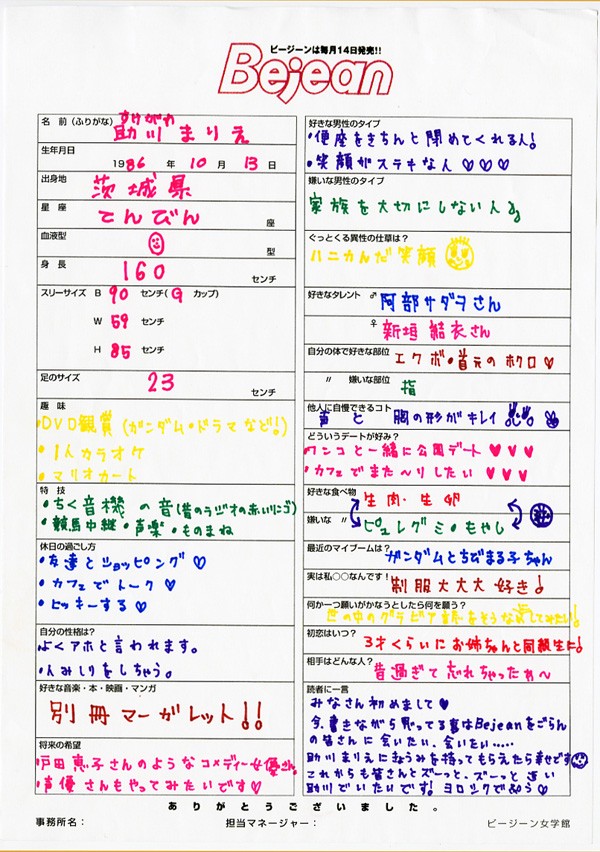 ビージーンは毎月14日発売!!
Bejean
名 前(ふりがな) すけがわ
助川まりえ
生年月日
1986 年 10 月 13 日
出身地
茨城県
星 座
てんびん 座
血液型
型
身 長
160 センチ
スリーサイズ B 90 センチ(G カップ)
W 59 センチ
H 85 センチ
足のサイズ
23 センチ
趣 味
・DVD観賞(ガンダム・ドラマなど!)
・1人カラオケ
・マリオカート
特 技
・ちく音機の音(昔のラジオの赤いリンゴ)
・競馬中継・声楽・ものまね
休日の過ごし方
・友達とショッピング♡
・カフェでトーク♡
・ヒッキーする♡
自分の性格は?
よくアホと言われます。
人みしりをしちゃう。
好きな音楽・本・映画・マンガ
別冊マーガレット!!
将来の希望
戸田恵子さんのようなコメディー女優さん。
声優さんもやってみたいです♡
好きな男性のタイプ
・便座をきちんと閉めてくれる人!
・笑顔がステキな人♡♡♡
嫌いな男性のタイプ
家族を大切にしない人
ぐっとくる異性の仕草は?
ハニカんだ笑顔
好きなタレント ♂ 阿部サダヲさん
♀ 新垣結衣さん
自分の体で好きな部位 エクボ・首元のホクロ♡
〃 嫌いな部位 指
他人に自慢できるコト
声と胸の形がキレイ
どういうデートが好み?
・ワンコと一緒に公園デート♥♥♥
・カフェでまた〜りしたい♥♥♥
好きな食べ物 生肉・生卵
嫌いな 〃 ピュレグミ・もやし
最近のマイブームは? ガンダムとちびまる子ちゃん
実は私○○なんです! 制服大大大好き!
何か一つ願いがかなうとしたら何を願う?
初恋はいつ? 3才くらいにお姉ちゃんと同級生に!
相手はどんな人? 昔過ぎて忘れちゃったぁ〜
読者に一言
みなさん初めまして♥
今、書きながら思ってる事はBejeanをごらん
の皆さんに会いたい、会いたい‥‥‥
助川まりえにきょうみを持ってもらえたら幸せです
これからも皆さんとズーっと、ズーっと遠い
助川でいたいです!ヨロシクでぷう♡
ありがとうございました。
事務所名: 担当マネージャー: ビージーン女学館